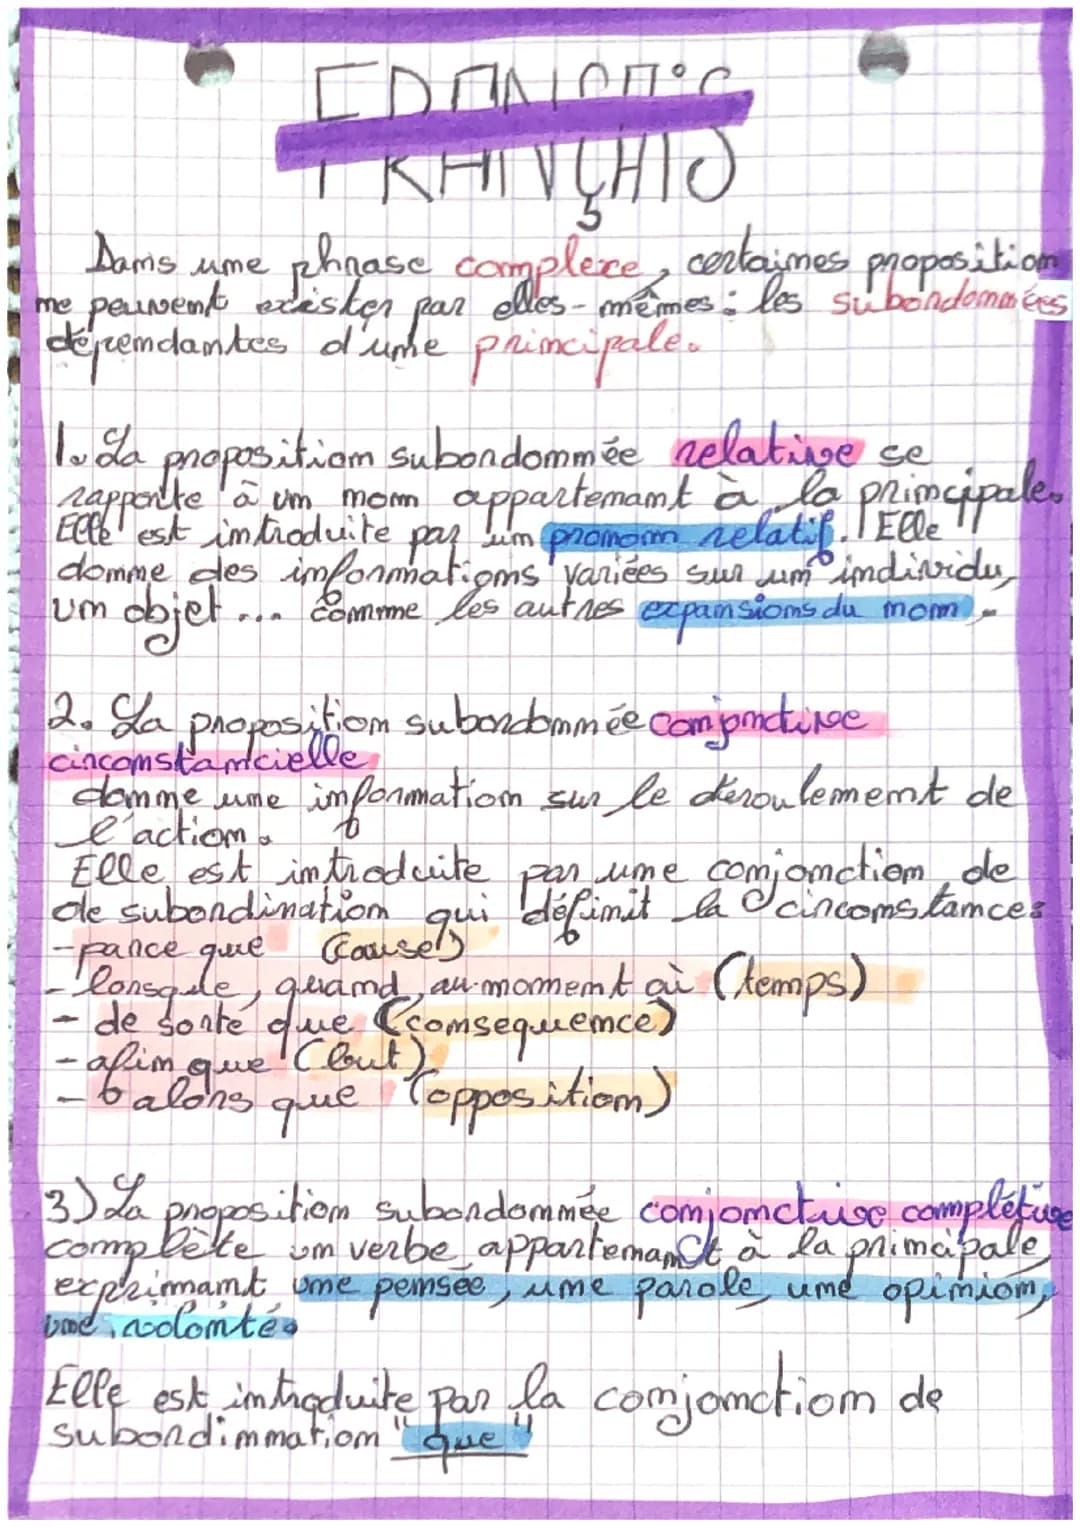 FRANÇAIS
Dans une phrase complexe, certaines proposition
ne peuvent exister par elles-mêmes : les subordonnées
dépendantes d'une principale.
1. La proposition subordonnée relative se
rapporte à un nom appartenant à la principale.
Elle est introduite par un pronom relatif. Elle
donne des informations variées sur un individu,
un objet ... comme les autres expansions du nom.
2. La proposition subordonnée conjonctive
circonstancielle
donne une information sur le déroulement de
l'action.
Elle est introduite par une conjonction de
de subordination qui définit la circonstances
- parce que (cause)
- lorsque, quand, au moment où (temps)
- de sorte que (consequence)
- afin que (but)
- alors que (opposition)
3) La proposition subordonnée conjonctive complétive
complète un verbe appartenant à la principale,
exprimant une pensée, une parole, une opinion,
une volonté.
Elle est introduite par la conjonction de
subordination "que"